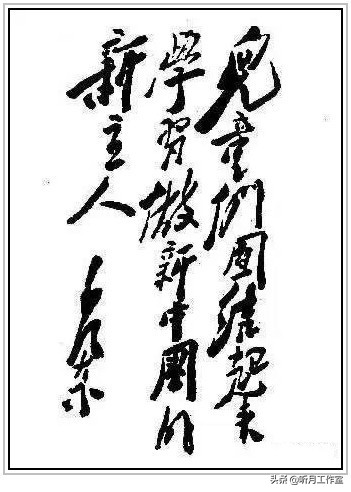 兒童們團結起来
學習做新中國的
新主人
毛澤東
头条 @听月工作室